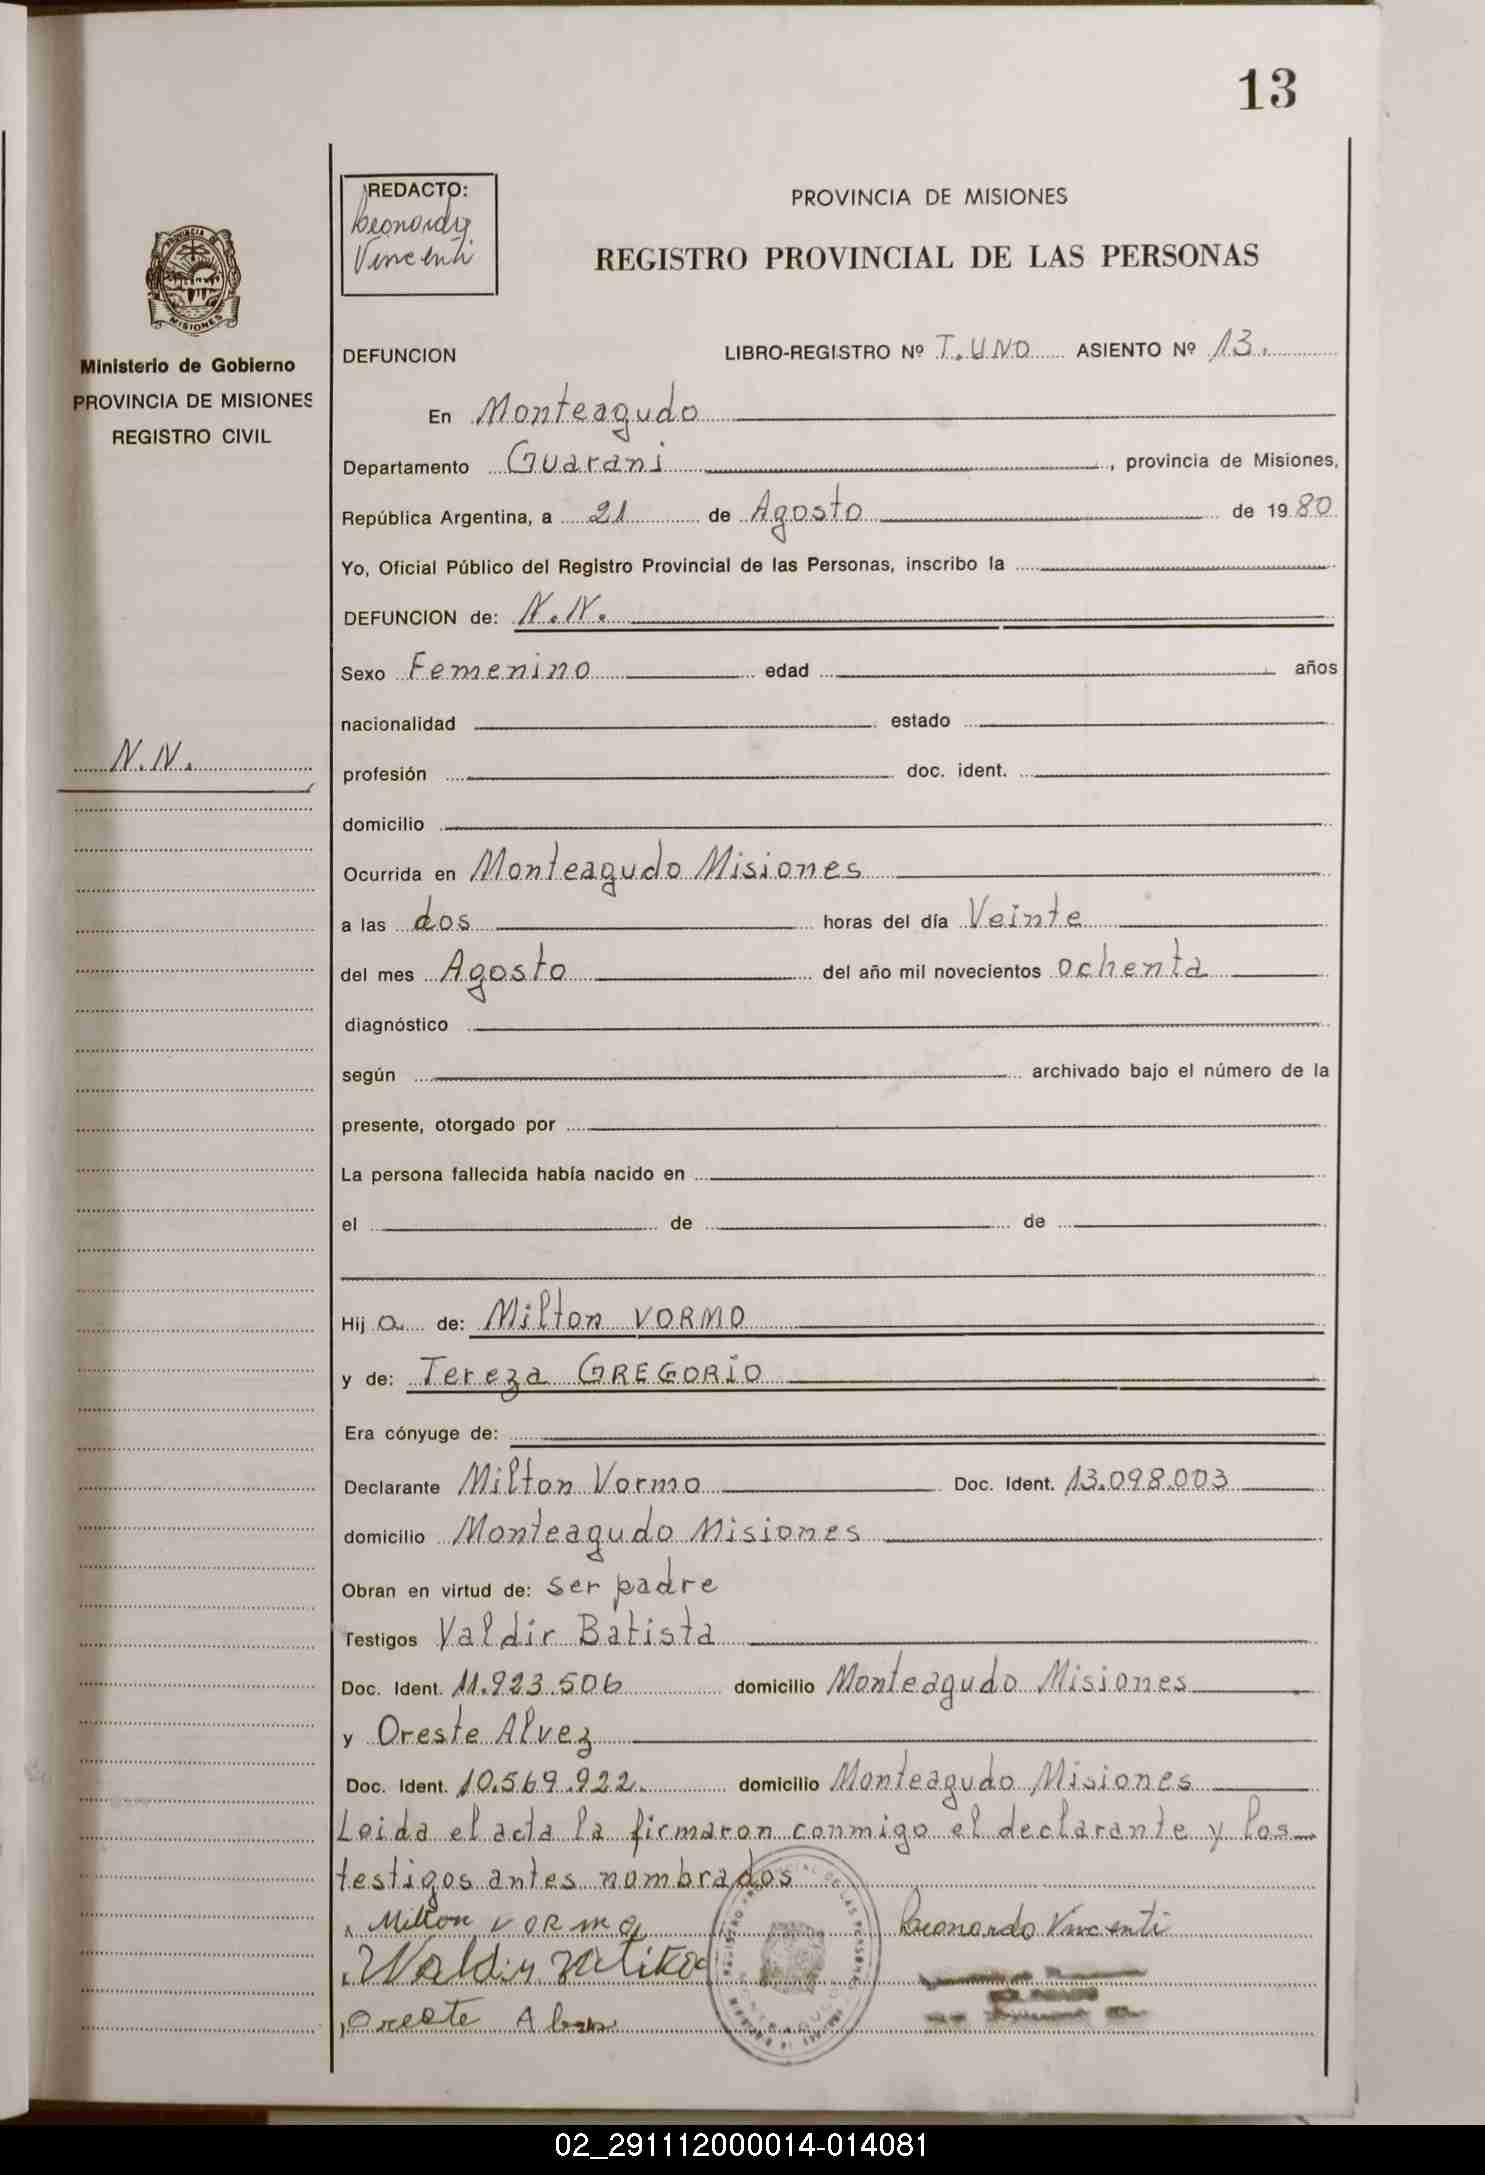 13
REDACTO:
Leonardo
Vincenti
PROVINCIA DE MISIONES
REGISTRO PROVINCIAL DE LAS PERSONAS
MISIONES
Ministerio de Gobierno
PROVINCIA DE MISIONES
REGISTRO CIVIL
DEFUNCION LIBRO-REGISTRO Nº T. UNO ASIENTO Nº 13.
En Monteagudo
Departamento Guarani, provincia de Misiones,
República Argentina, a 21 de Agosto de 1980
Yo, Oficial Público del Registro Provincial de las Personas, inscribo la
DEFUNCION de: N.N.
Sexo Femenino edad años
nacionalidad estado
N.N.
profesión doc. ident.
domicilio
Ocurrida en Monteagudo Misiones
a las dos horas del día Veinte
del mes Agosto del año mil novecientos ochenta
diagnóstico
según archivado bajo el número de la
presente, otorgado por
La persona fallecida había nacido en
el de de
Hij a de: Milton VORMO
y de: Tereza GREGORIO
Era cónyuge de:
Declarante Milton Vormo Doc. Ident. 13.098.003
domicilio Monteagudo Misiones
Obran en virtud de: ser padre
Testigos Valdir Batista
Doc. Ident. 11.923.506 domicilio Monteagudo Misiones
y Oreste Alvez
Doc. Ident. 10.569.922. domicilio Monteagudo Misiones
Leida el acta la firmaron conmigo el declarante y los
testigos antes nombrados
Milton VORMO Leonardo Vincenti
Oreste
02_291112000014-014081